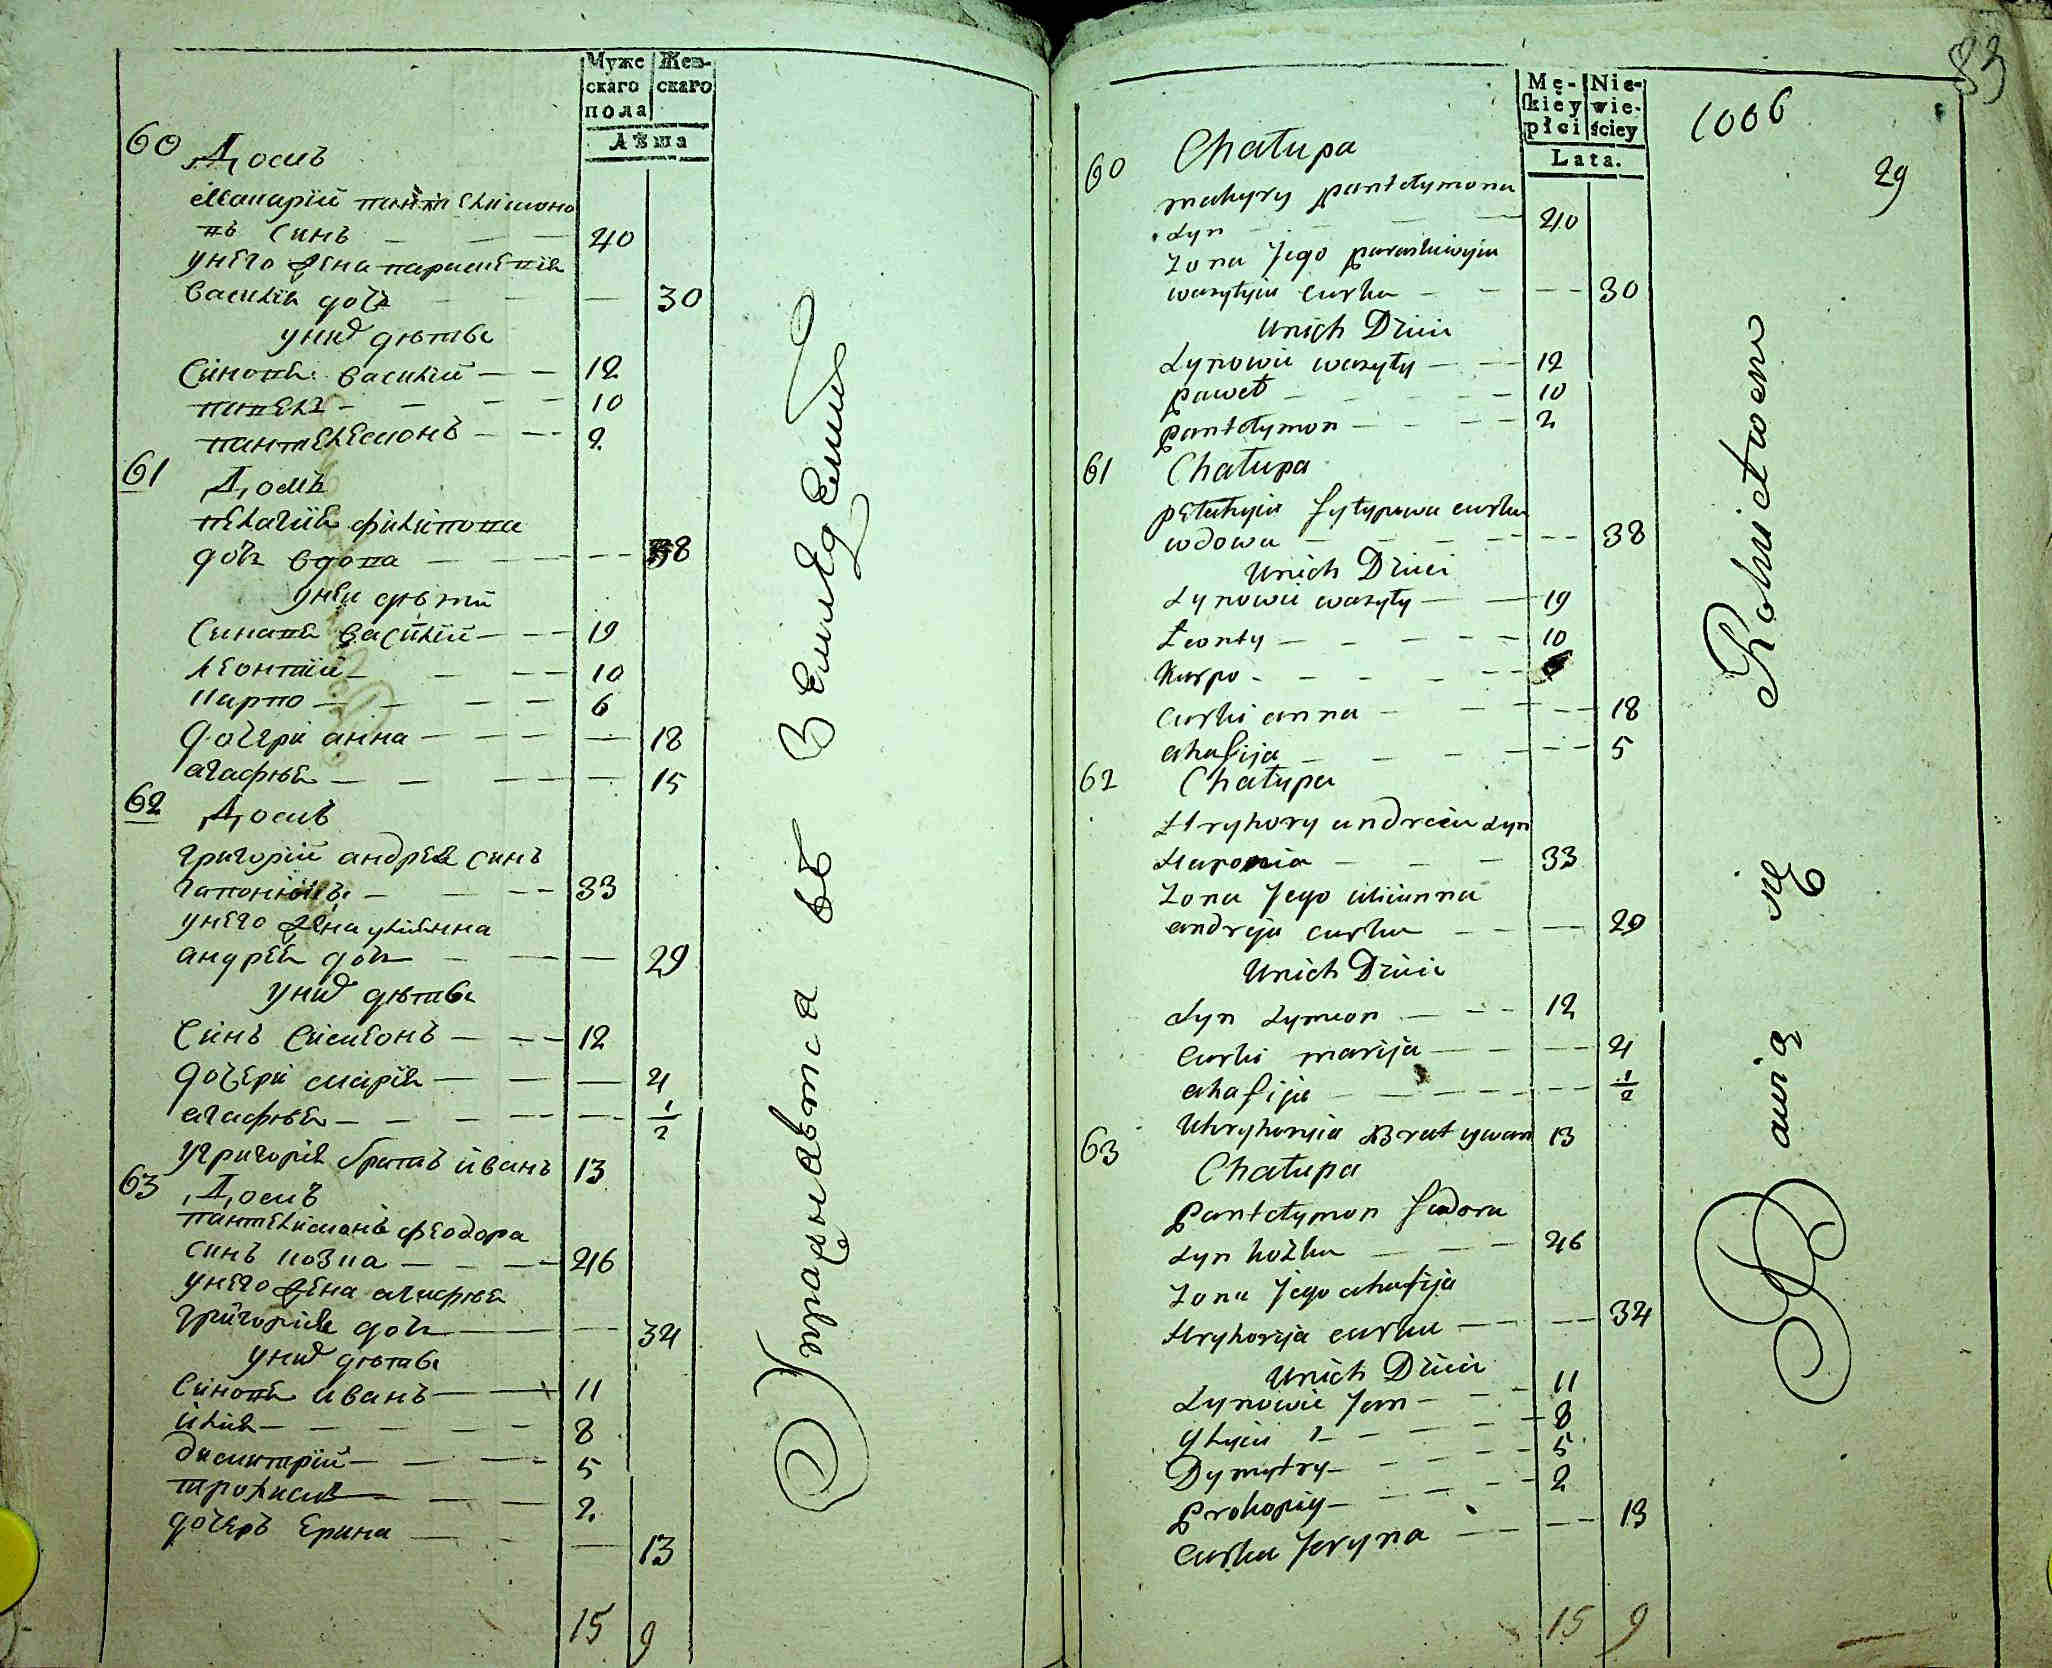 Муже
скаго
пола
Жен-
скаго
Лѣта
60 Домъ
Макарїй пантелимоно
въ синъ — — — 40
унего жена параскевїя
василїя дочь — — — 30
унихъ дѣтей
Синовя василїй — — 12
павелъ — — — — 10
пантелемонъ — — — 2
61 Домъ
пелагія филипова
дочь вдова — — — 38
унеи дѣти
Синовя василїй — — — 19
леонтїй — — — — 10
Карпо — — — — 6
дочери анна — — — — 18
агафія — — — — — 15
62 Домъ
григорїй андрея синъ
гапонюкъ — — — — 33
унего жена улянна
андрея дочь — — — 29
унихъ дѣтей
Синъ Симеонъ — — — 12
дочери марія — — — 4
агафія — — — — — 1/2
угригорія братъ иванъ 13
63 Домъ
пантелимонъ феодора
синъ козка — — — 46
унего жена агафія
григорія дочь — — — 34
унихъ дѣтей
Синовя иванъ — — — 11
илія — — — — — 8
димитрїй — — — — 5
— — — 2
дочеръ Ерина — — — 13
15 9
Упражнявтса въ Земледелии
Mę-
ſkiey
płci
Nie-
wie-
ściey
Lata.
1006
83
29
60 Chałupa
makyry pantełymona
syn — — — 40
Zona Jego paraskiwija
wasylyia curka — — — 30
Unich Dzici
Synowie wasyły — — 12
paweł — — — — — 10
pantełymon — — — — 2
61 Chałupa
pełahyia fyłypowa curka
wdowa — — — — — 38
Unich Dzieci
Synowie wasyły — — 19
Łeonty — — — — — 10
Karpo — — — — —
curki anna — — — — 18
ahafija — — — — — 5
62 Chałupa
Hryhory andreia syn
Haponia — — — 33
Zona Jego ulianna
andryja curka — — — 29
Unich Dzici
Syn Symeon — — — 12
Curki marija — — — 4
ahafija — — — — — 1/2
Uhryhoryia Brat ywan 13
63 Chałupa
Pantełymon fiadora
syn kozka — — — 46
Zona Jego ahafija
Hryhorija curka — — — 34
Unich Dzici
Synowie Jwan — — — 11
Ylyia — — — — — 8
Dymytry — — — — 5
Prokopiy — — — — 2
Curka Jeryna — — — 13
15 9
Bawią się Rolnictwem